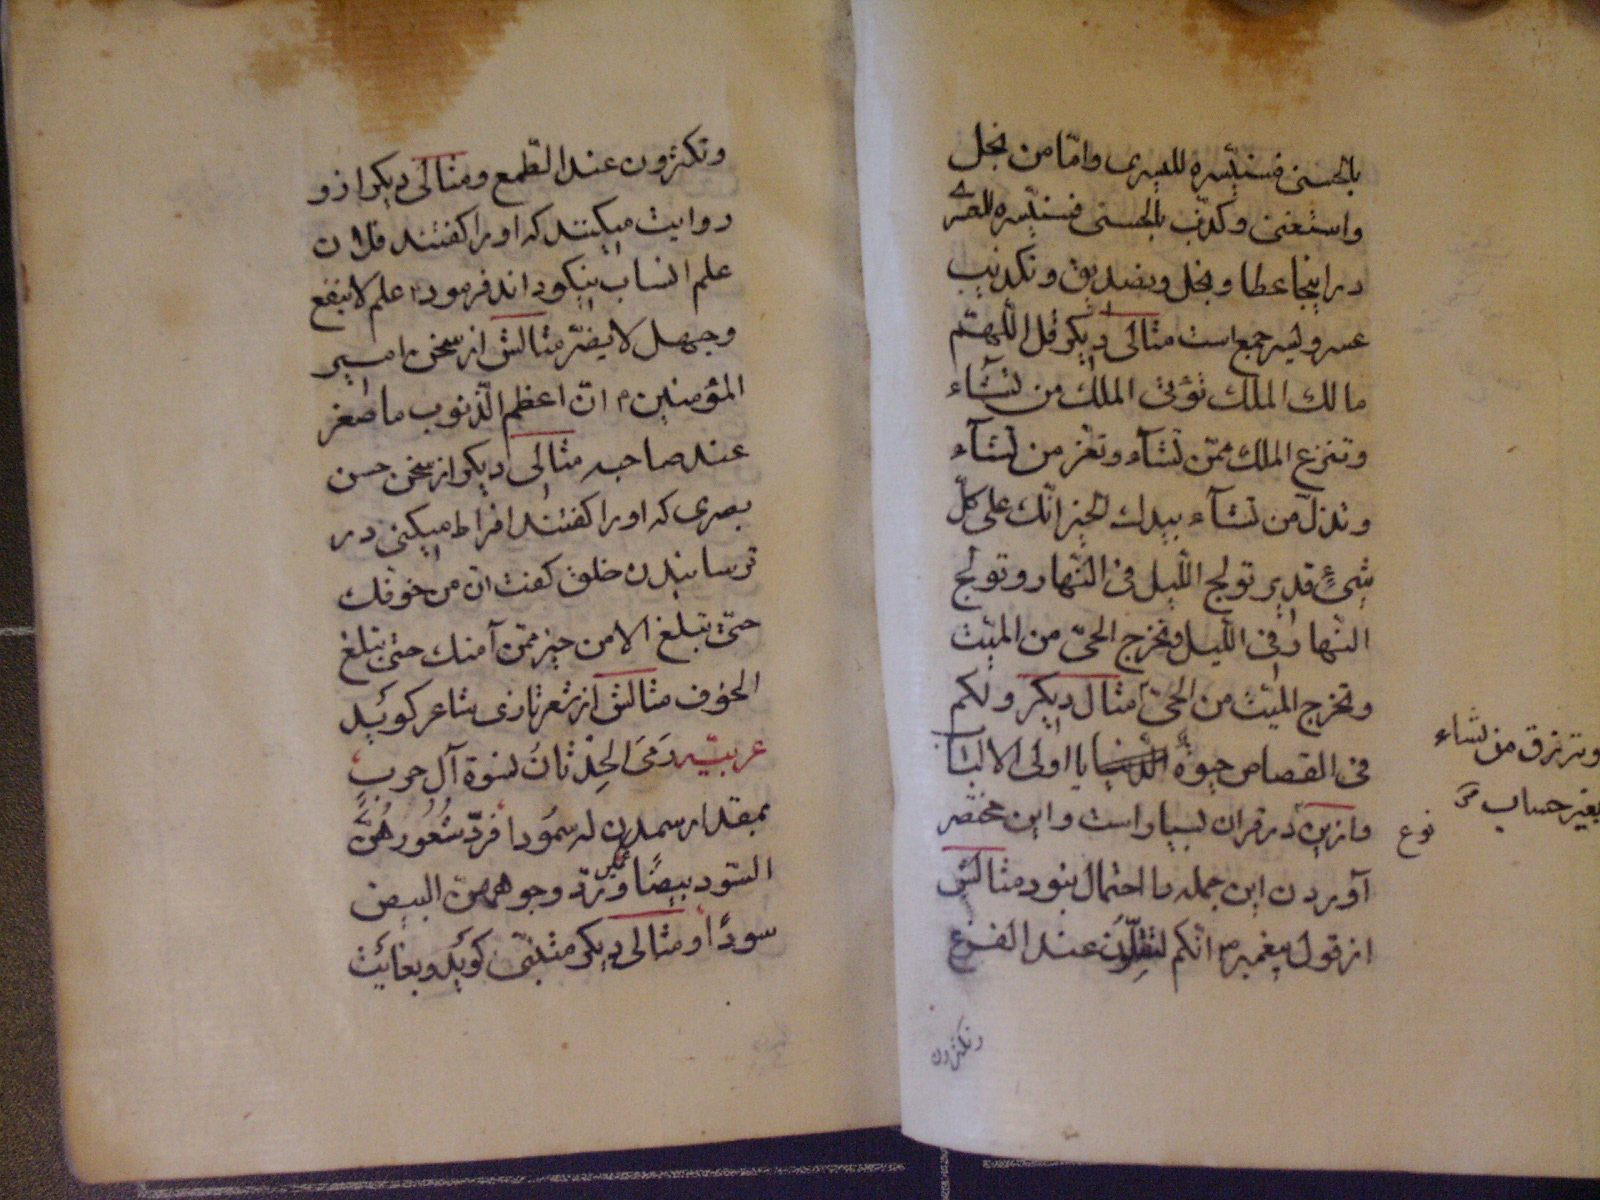 بالحسنى فسنیسره للیسرى وامّا من بخل
واستغنى وکذّب بالحسنى فسنیسره للعسرى
در اینجا عطا و بخل و تصدیق و تکذیب
عسر و یسر جمع است مثالی دیکر قل اللّهمّ
مالك الملك تؤتی الملك من تشآء
وتنزع الملك ممّن تشآء وتعزّ من تشآء
وتذلّ من تشآء بیدك الخیر انّك على کلّ
شیءٍ قدیر تولج اللّیل فی النّهار وتولج
النّهار فی اللّیل وتخرج الحیّ من المیّت
وتخرج المیّت من الحیّ مثال دیکر ولکم
فی القصاص حیوة یا اولی الالباب
وازین نوع در قران بسیار است واین مختصر
آوردن این جمله را احتمال نبود مثالش
از قول پیغمبر م انّکم لتقلّون عند الفزع
وتکثرون
وترزق من تشاء
بغیر حساب
وتکثرون عند الطّمع ومثالی دیکر ازو
روایت میکنند که اورا کفتند فلان
علم انساب نیکو داند فرمود م علم لا ینفع
وجهل لا یضرّ مثالش از سخن امیر
المؤمنین م انّ اعظم الذّنوب ما صغر
عند صاحبه مثالی دیکر از سخن حسن
بصری که اورا کفتند افراط میکنی در
ترسانیدن خلق کفت انّ من خوفك
حتّى تبلغ الامن خیر ممّن آمنك حتى تبلغ
الخوف مثالش از شعر تازی شاعر کوید
عربیّه رَمَى الحِدْثانُ نسوة آل حربٍ
بمقدار سمدن له سمُودا فردّ شُعُورهُنَّ
السّود بیضًا وردّ وجوههنّ البیض
سودًا ومثالی دیکر متنبّی کوید وبغایت